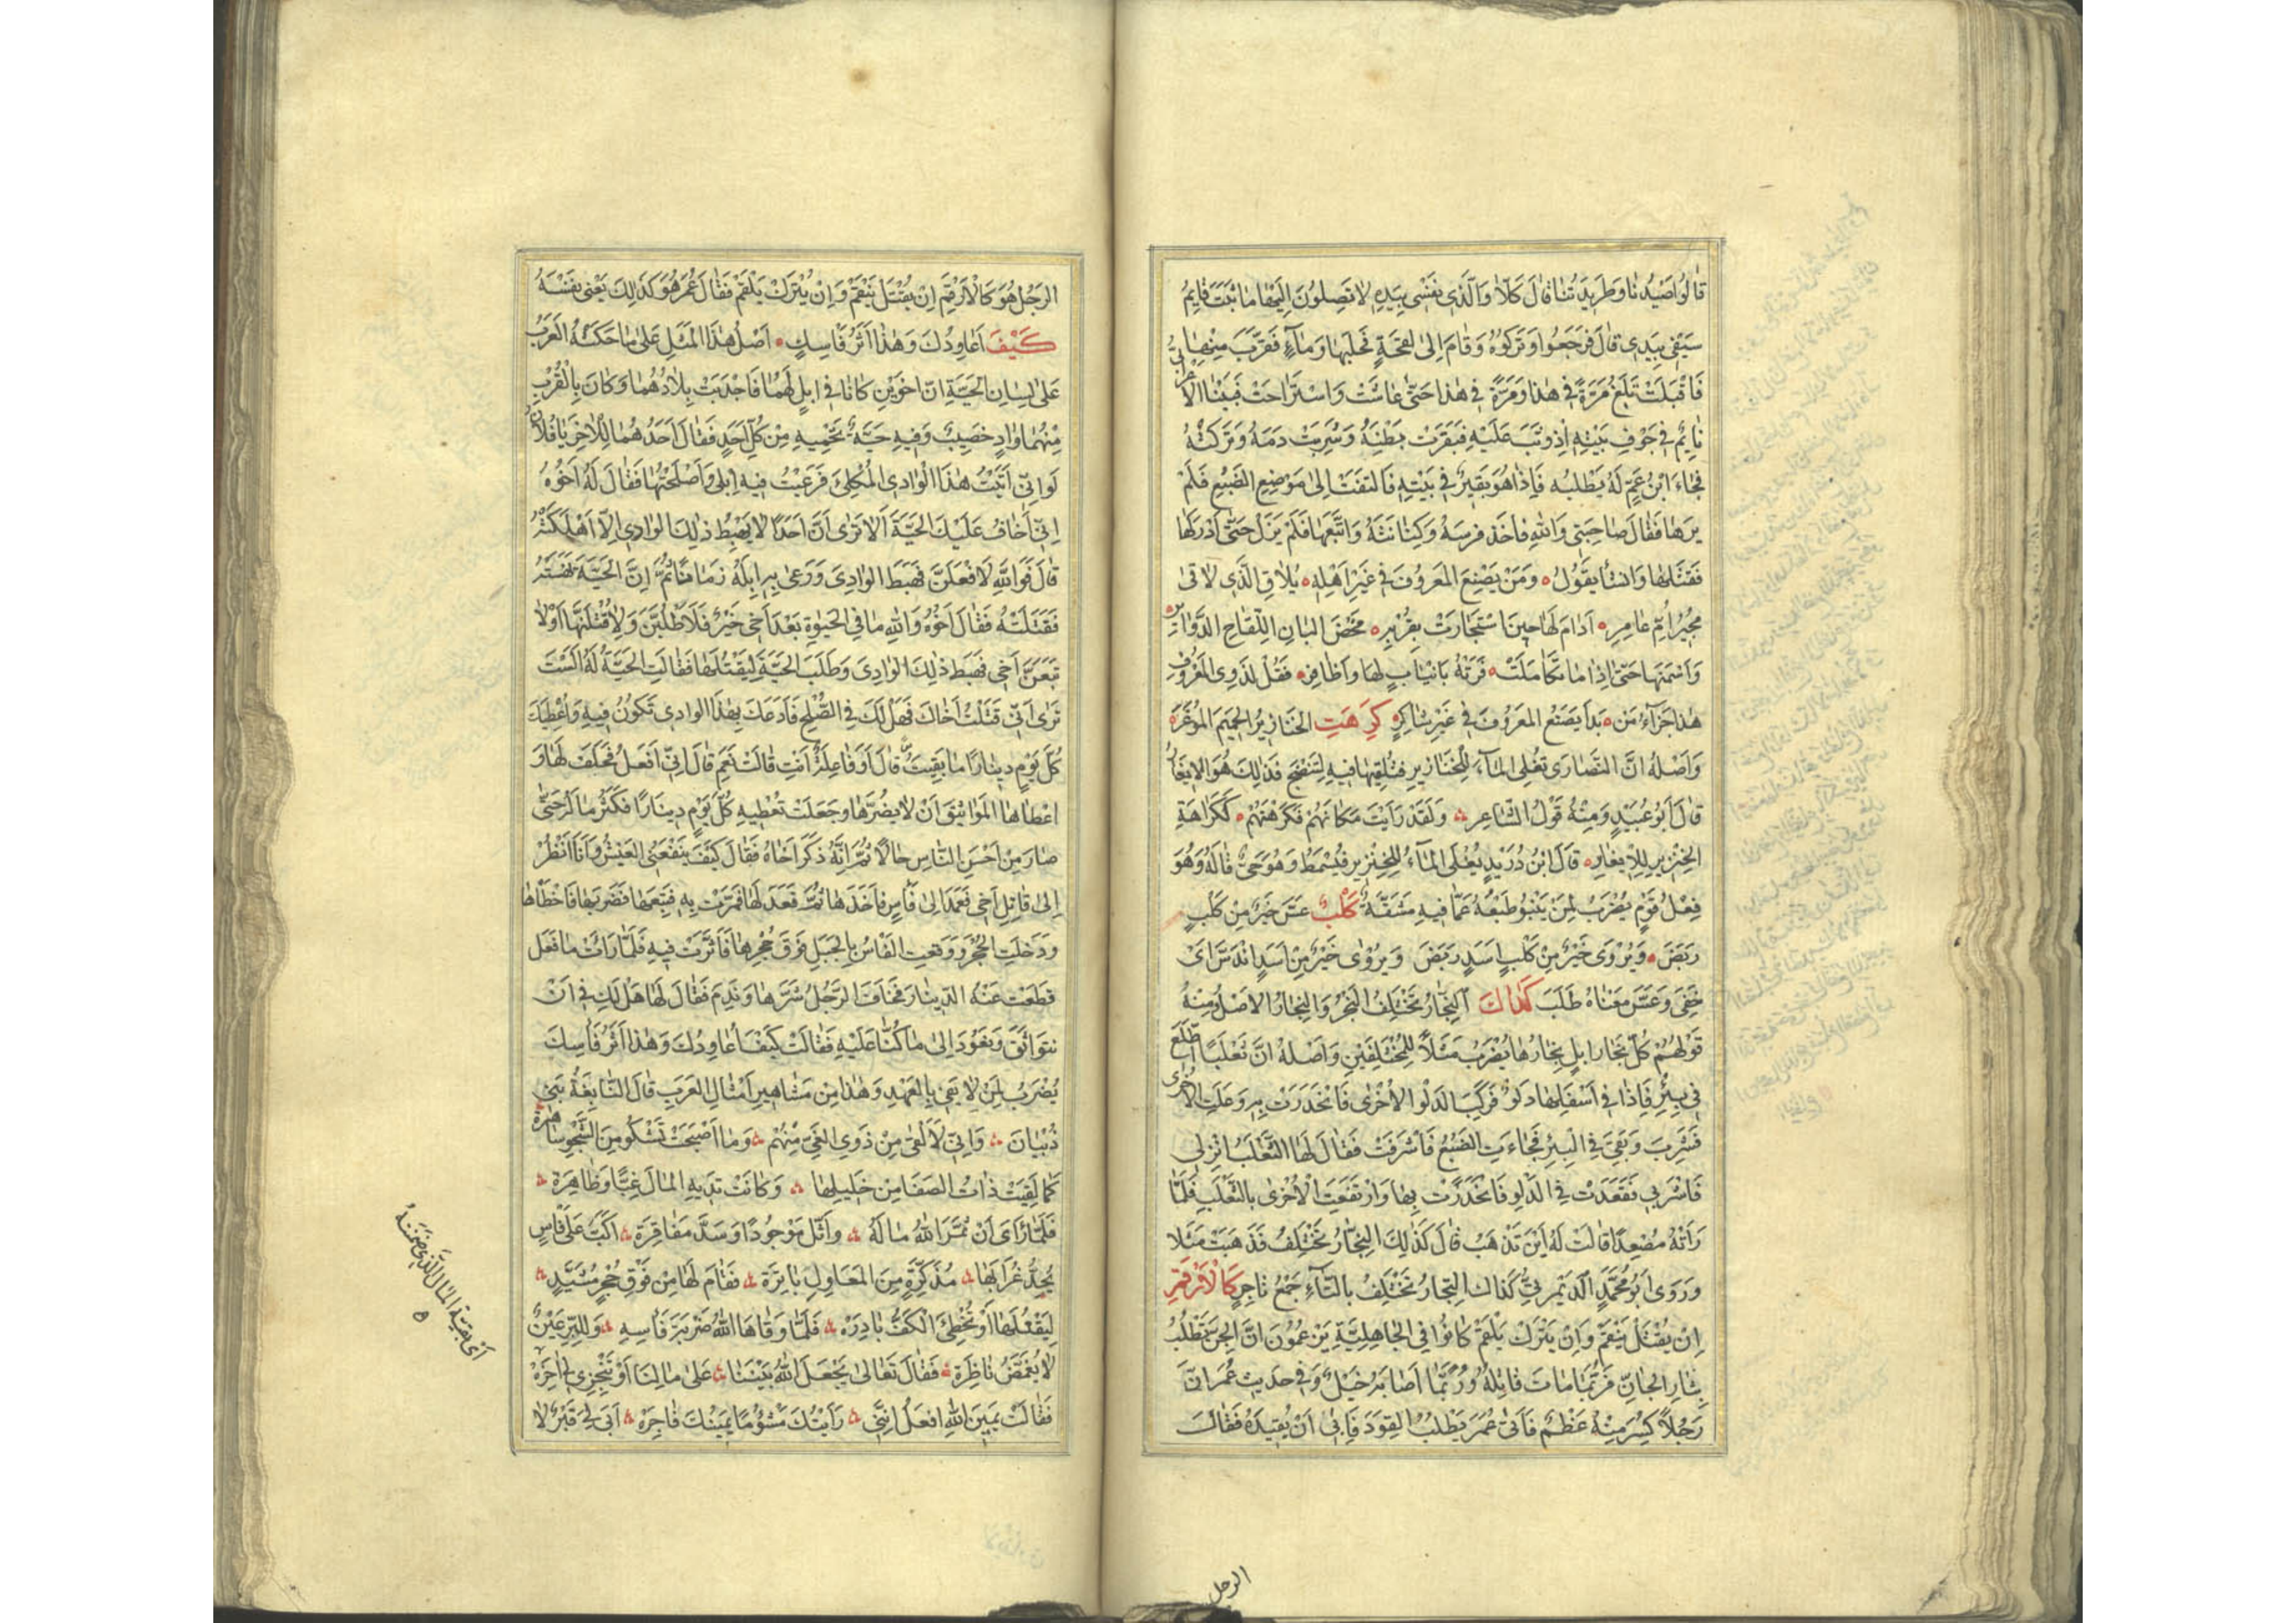 قالوا صيدنا وطريدتنا قال كلا والذي نفسي بيده لا تصلون اليها ما ثبت قايم
سيفي بيدي قال فرجعوا وتركوه وقام الى لقحة فحلبها وماء فقرب منها
فاقبلت تلغ مرة في هذا ومرة في هذا حتى عاشت واستراحت فبينا الاعرابي
نايم في جوف بيته اذ وثب عليه فبقرت بطنه وشربت دمه وتركته
فجاء ابن عم له يطلبه فاذا هو بقير في بيته فالتفت الى موضع الضبع فلم
يرها فقال صاحبتي والله فاخذ فرسه وكنانته واتبعها فلم يزل حتى ادركها
فقتلها وانشأ يقول ومن يصنع المعروف في غير اهله يلاق الذي لاقى
مجير ام عامر ادام لها حين استجارت بقربه محض البان اللقاح الدواير
واسمنها حتى اذا ما تكاملت فرته بانياب لها واظافر فقل لذوي المعروف
هذا جزاء من بدا يصنع المعروف في غير شاكر كرهت الخنازير الحميم الموغر
واصله ان النصارى تغلي الماء للخنازير فتلقيها فيه لتنضج فذلك هو الايغار
قال ابو عبيد ومنه قول الشاعر ولقد رايت مكانهم فكرهتهم ككراهة
الخنزير للايغار قال ابن دريد يغلى الماء للخنزير فيسمط وهو حي قاله وهو
فعل قوم يضرب لمن ينبو طبعه عما فيه مشقة كلب عس خير من كلب
ربض ويروى خير من كلب اسد ربض ويروى خير من اسد اندس اي
خفي وعس معناه طلب كذاك النجار تختلف النجر والنجار الاصل ومنه
قولهم كل نجار ابل نجارها يضرب مثلا للمختلفين واصله ان ثعلبا اطلع
في بئر فاذا في اسفلها دلو فركب الدلو الاخرى فانحدرت به وعلت الاخرى
فشرب وبقي في البئر فجاءت الضبع فاشرفت فقال لها الثعلب انزلي
فاشربي فقعدت في الدلو فانحدرت بها وارتفعت الاخرى بالثعلب فلما
رأته مصعدا قالت له اين تذهب قال كذلك النجار تختلف فذهبت مثلا
وروى ابو محمد الديمرتي كذاك التجار تختلف بالتاء جمع تاجر كالارقم
ان يقتل ينقم وان يترك يلقم كانوا في الجاهلية يزعمون ان الجن تطلب
بثار الجان فربما مات قاتله وربما اصابه خبل وفي حديث عمر ان
رجلا كسر منه عظم فاتى عمر يطلب القود فابى ان يقيده فقال
الرجل
الرجل هو كالارقم ان يقتل ينقم وان يترك يلقم فقال عمر هو كذلك يعني نفسه
كيف اعاودك وهذا اثر فاسك اصل هذا المثل على ما حكته العرب
على لسان الحية ان اخوين كانا في ابل لهما فاجدبت بلادهما وكان بالقرب
منهما واد خصيب وفيه حية تحميه من كل احد فقال احدهما للاخر يا فلان
لو اني اتيت هذا الوادي المكلئ فرعيت فيه ابلي واصلحتها فقال له اخوه
اني اخاف عليك الحية الا ترى ان احدا لا يهبط ذلك الوادي الا اهلكته
قال فوالله لافعلن فهبط الوادي ورعى به ابله زمانا ثم ان الحية نهشته
فقتلته فقال اخوه والله ما في الحيوة بعد اخي خير فلاطلبن ولاقتلنها او لا
تبعن اخي فهبط ذلك الوادي وطلب الحية ليقتلها فقالت الحية له الست
ترى اني قتلت اخاك فهل لك في الصلح فادعك بهذا الوادي تكون فيه واعطيك
كل يوم دينارا ما بقيت قال اوفاعلة انت قالت نعم قال اني افعل فحلف لها و
اعطاها المواثيق ان لا يضرها وجعلت تعطيه كل يوم دينارا فكثر ماله حتى
صار من احسن الناس حالا ثم انه ذكر اخاه فقال كيف ينفعني العيش وانا انظر
الى قاتل اخي فعمد الى فأس فاخذها ثم قعد لها فمرت به فتبعها فضربها فاخطأها
ودخلت الجحر ووقعت الفاس بالجبل فوق جحرها فاثرت فيه فلما رات ما فعل
قطعت عنه الدينار فخاف الرجل شرها وندم فقال لها هل لك في ان
نتواثق ونعود الى ما كنا عليه فقالت كيف اعاودك وهذا اثر فاسك
يضرب لمن لا يفي بالعهد وهذا من مشاهير امثال العرب قال النابغة بني
ذبيان واني لالقى من ذوي الغي منهم وما اصبحت تشكو من الشجو ساهرة
كما لقيت ذات الصفا من خليلها وكانت تديه المال غبا وظاهرة
فلما راى ان ثمر الله ماله واثل موجودا وسد مفاقرة اكب على فاس
يحد غرابها مذكرة من المعاول باترة فقام لها من فوق جحر مشيد
ليقتلها او تخطئ الكف بادره فلما وقاها الله ضربة فاسه وللبر عين
لا يغمض ناظرة فقال تعالي يجعل الله بيننا على مالنا او تنجزي لي اخره
فقالت يمين الله افعل انني رايتك مشؤما يمينك فاجره ابى لي قبر لا
اي بقية المال الذي ضمنه